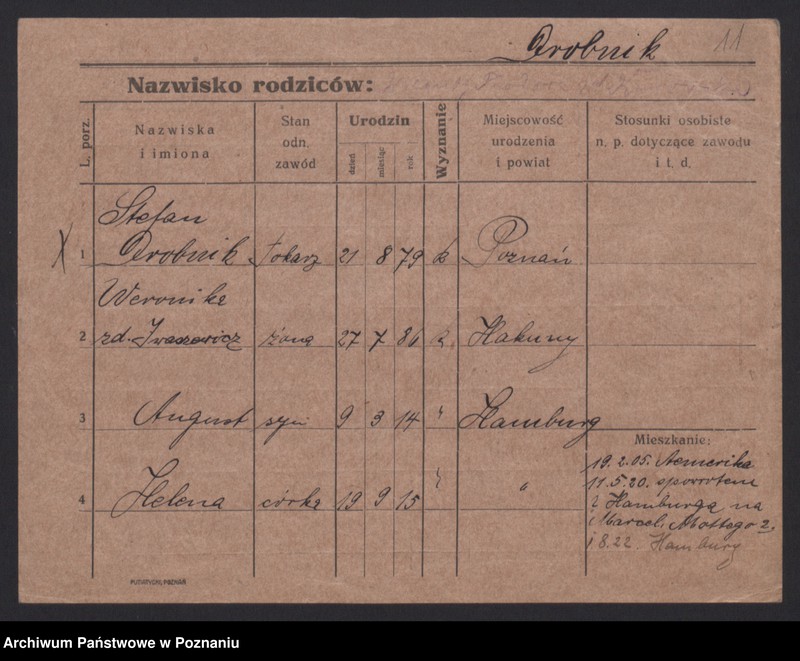 Drobnik 11
Nazwisko rodziców:
L. porz.
Nazwiska
i imiona
Stan
odn.
zawód
Urodzin
dzień
miesiąc
rok
Wyznanie
Miejscowość
urodzenia
i powiat
Stosunki osobiste
n. p. dotyczące zawodu
i t. d.
Stefan
X 1 Drobnik tokarz 21 8 79 k Poznań
Weronika
2 zd. żona 27 7 86 k Hakuny
3 August syn 9 3 14 " Hamburg
Mieszkanie:
4 Helena córka 19 9 15 " "
19.2.05. Aemerika
11.5.20. spowrotem
z Hamburga na
Marcel. Mottego 2.
8.22. Hamburg
PUTIATYCKI, POZNAŃ
Archiwum Państwowe w Poznaniu